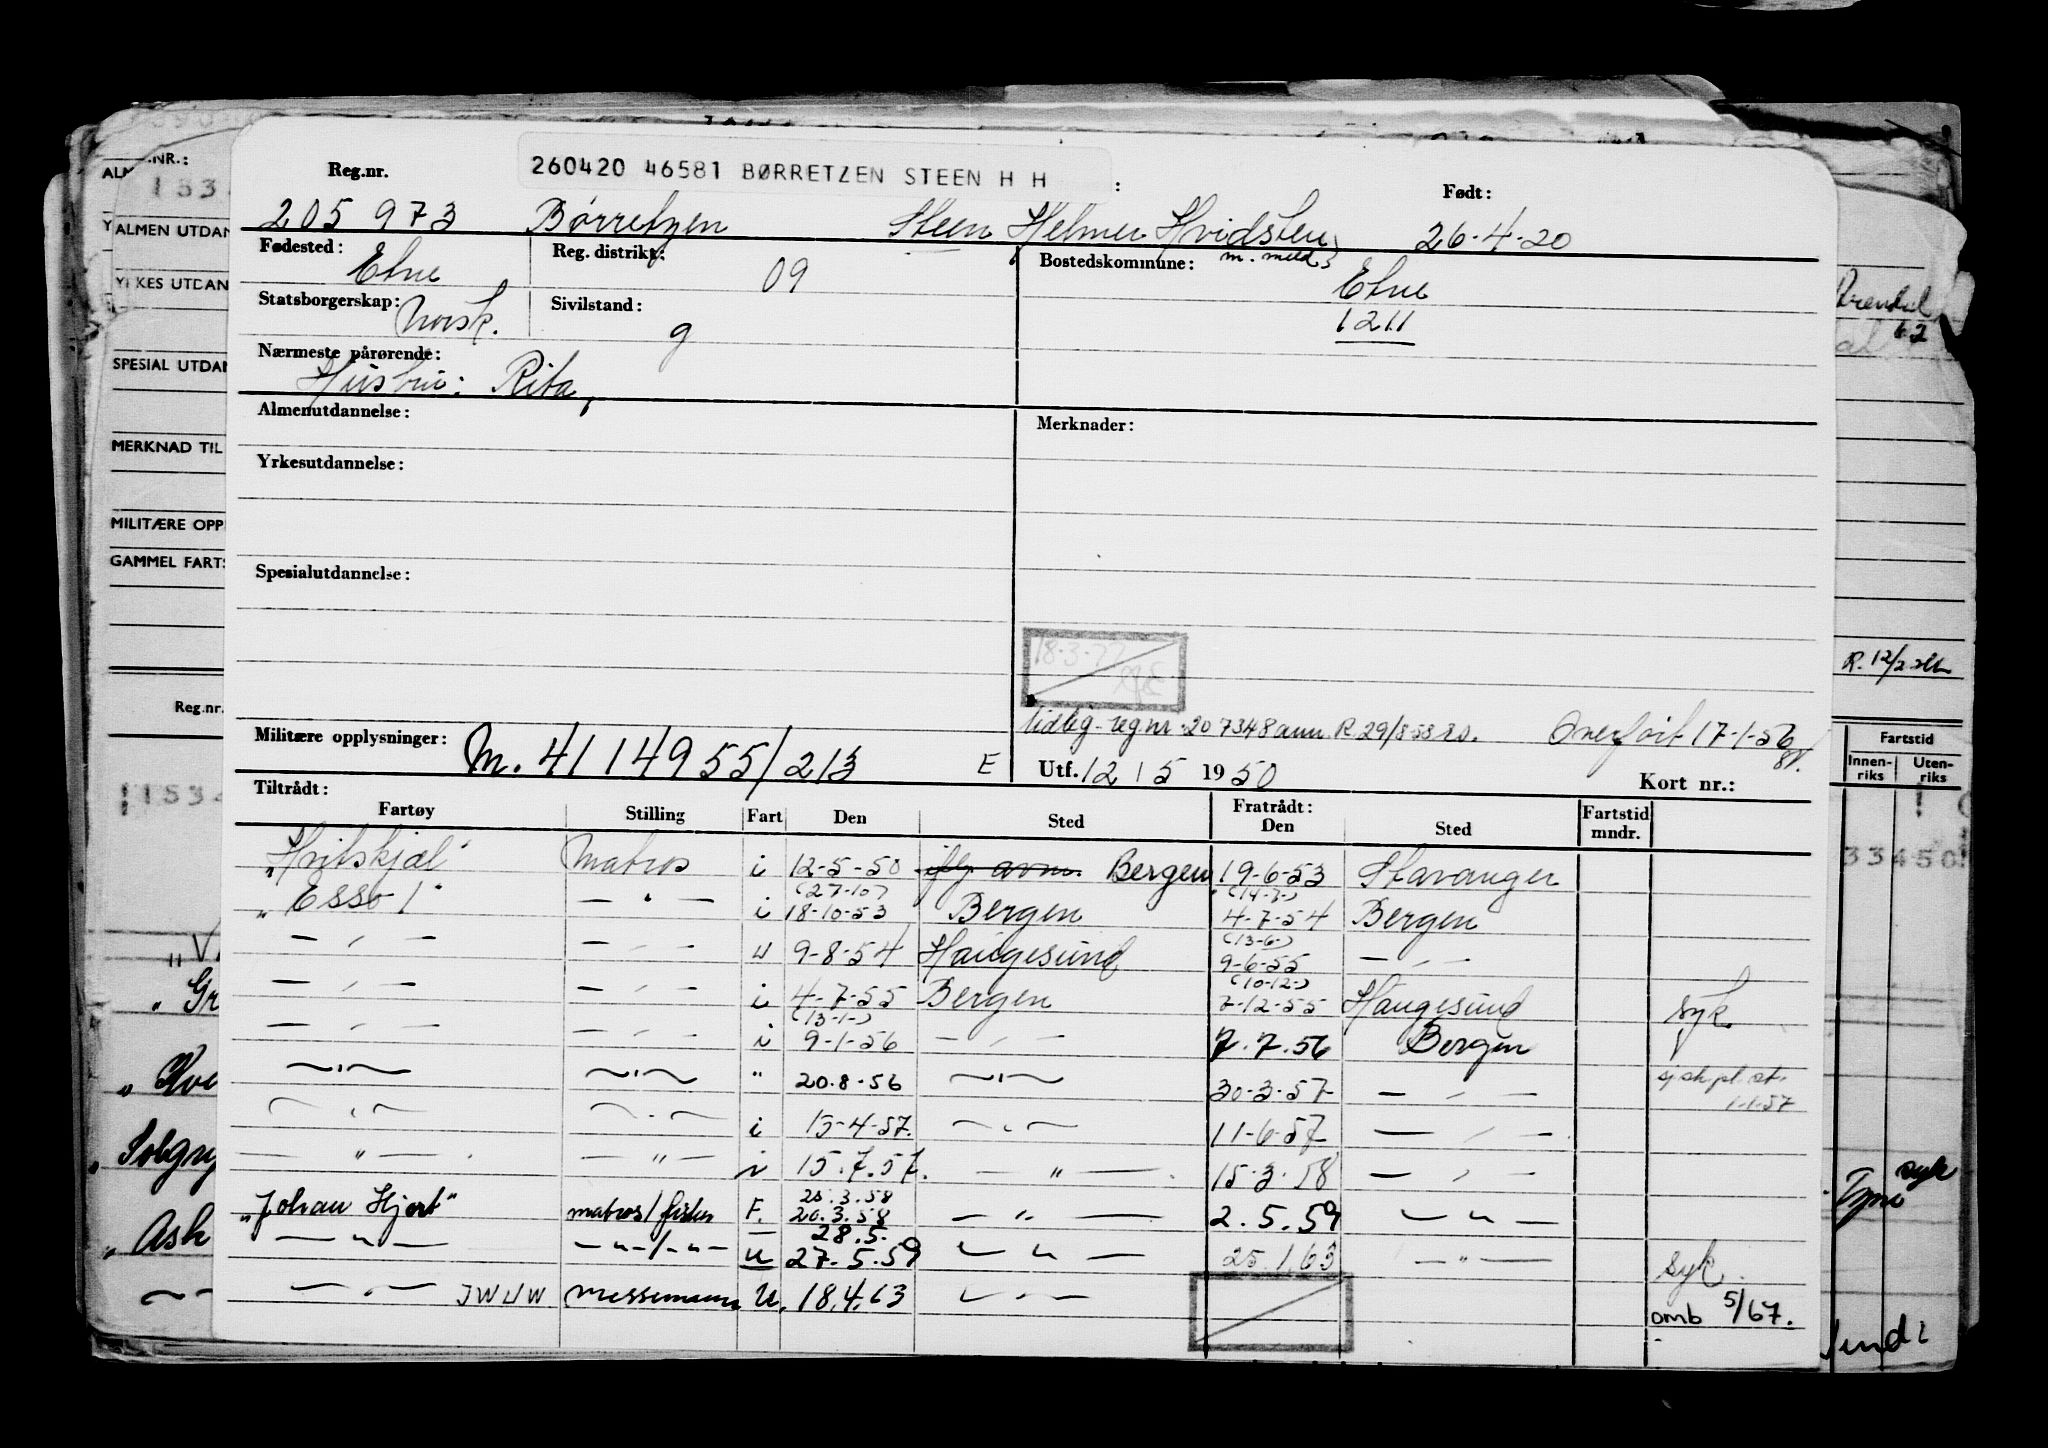 Reg.nr. 260420 46581 BØRRETZEN STEEN H H : Født:
205 973 Børretzen Steen Helmer Hvidsten 26-4-20
Fødested: Etne Reg. distrikt: 09 Bostedskommune: m. meld. Etne
Statsborgerskap: Norsk. Sivilstand: g 1211
Nærmeste pårørende:
Hustru: Rita,
Almenutdannelse: Merknader:
Yrkesutdannelse:
Spesialutdannelse:
18-3-77
tidlig. reg nr. 207348 ann. R 29/8-53 Overført 17-1-56
Militære opplysninger: M. 4114955/213 E Utf. 12 / 5 1950 Kort nr.:
Tiltrådt: Fratrådt:
Fartøy Stilling Fart Den Sted Den Sted Fartstid mndr.
"Hvitskjæl" Matros i 12-5-50 Bergen 19-6-53 Stavanger
(27-10) (14-7-)
"Esso 1" — " — i 18-10-53 Bergen 4-7-54 Bergen
(13-6-)
— " — — " — u 9-8-54 Haugesund 9-6-55 — " —
(10-12-)
— " — — " — i 4-7-55 Bergen 7-12-55 Haugesund syk.
(13-1-)
— " — — " — i 9-1-56 — " — 7.7.56 Bergen
— " — — " — " 20.8-56 — " — 30-3-57 — " — sj sk pl. at. 1-1-57
— " — — " — i 15-4-57. — " — 11-6-57 — " —
— " — — " — i 15.7.57. — " — 15-3-58 — " —
25.3.58
"Johan Hjort" matros/fisker F. 20.3.58 — " — 2.5.59 — " —
28.5-
— " — — " — / — " — u 27.5.59 — " — 25.1.63 — " — syk.
— " — JWIJW messemann U. 18.4.63 — " — omb 5/67.
ALMEN UTDAN
YRKES UTDAN
SPESIAL UTDAN
MERKNAD TIL
MILITÆRE OPP
GAMMEL FARTS
Reg.nr.
1534
"Gr
"Ask
Arendal
R. 12/2
Fartstid
Innenriks Utenriks
33450
syk